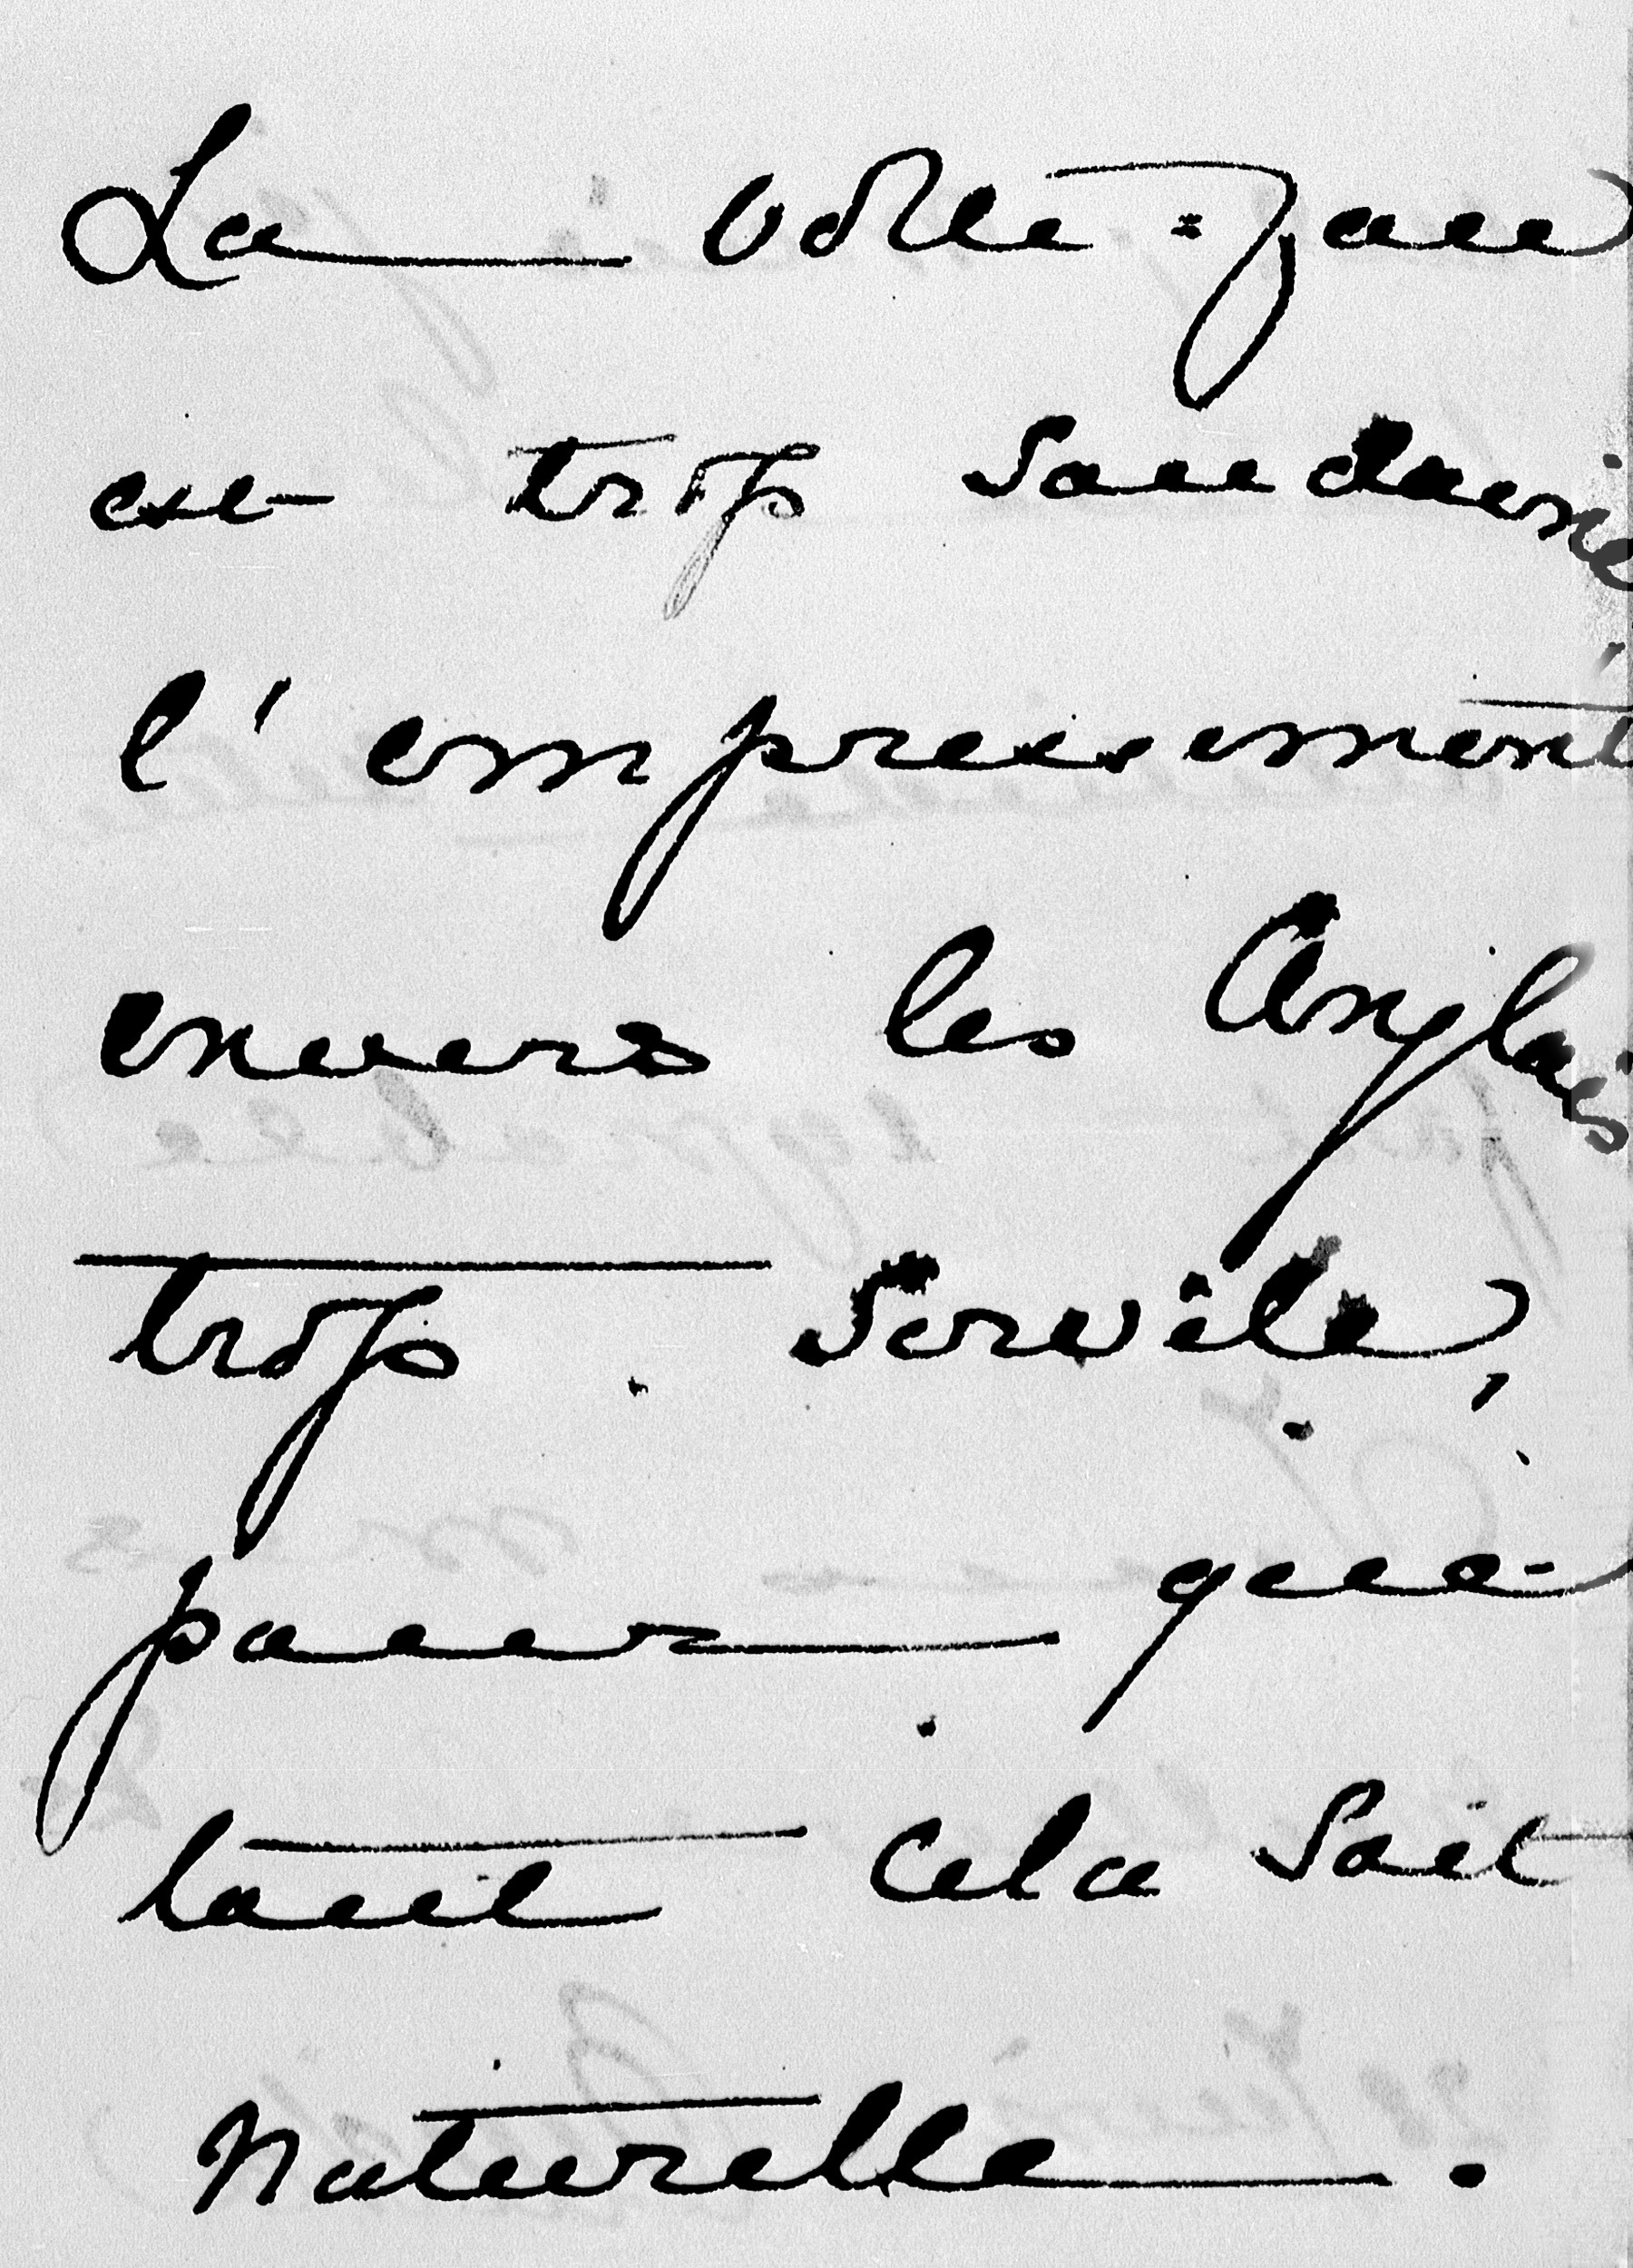 La volte-face
est trop soudaine
l'empressement
envers les Anglais
trop servile,
pour que
tout cela soit
naturelle.